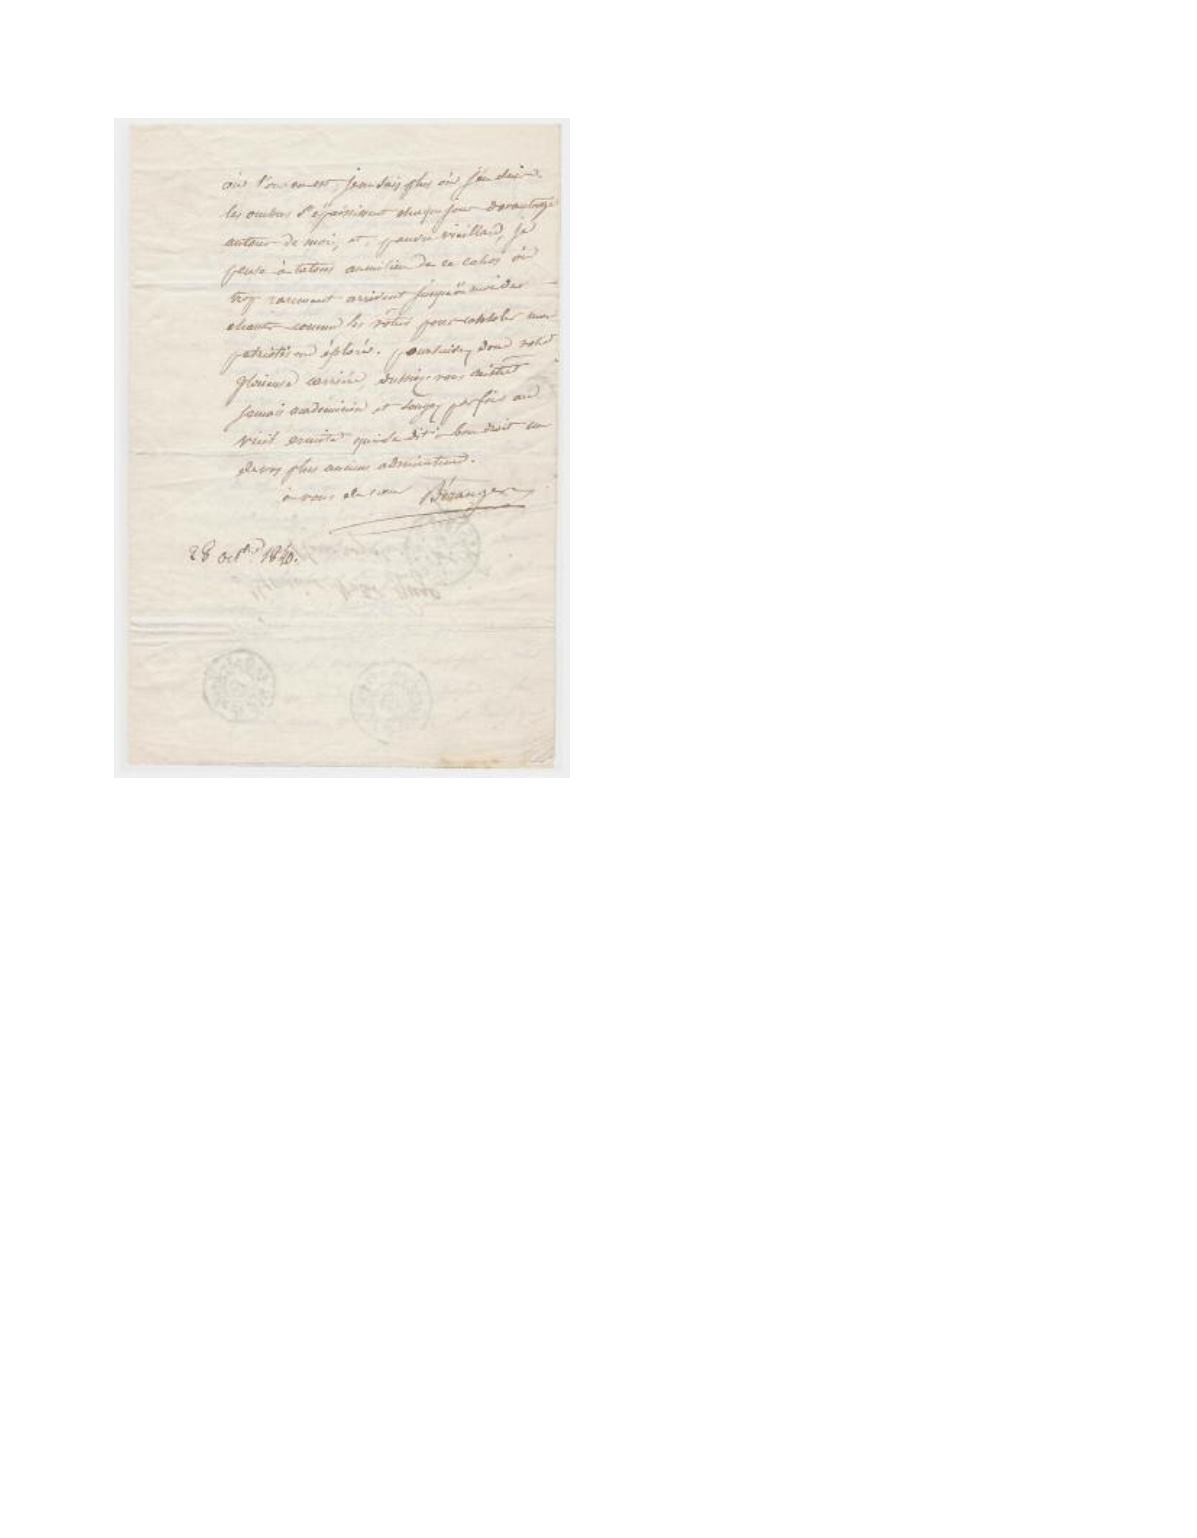 où l'on en est, je ne sais plus où j'en suis.
les ombres s'épaississent chaque jour davantage
autour de moi, et, pauvre vieillard, je
pense à tatons au milieu de ce cahos où
trop rarement arrivent jusqu'à moi des
chants comme les vôtres pour consoler mon
patriotisme éploré. poursuivez donc votre
glorieuse carrière, dussiez-vous n'être
jamais académicien et songez parfois au
vieil ermite qui se dit à bon droit un
de vos plus anciens admirateurs.
à vous de cœur Béranger
28 oct^bre 1840.